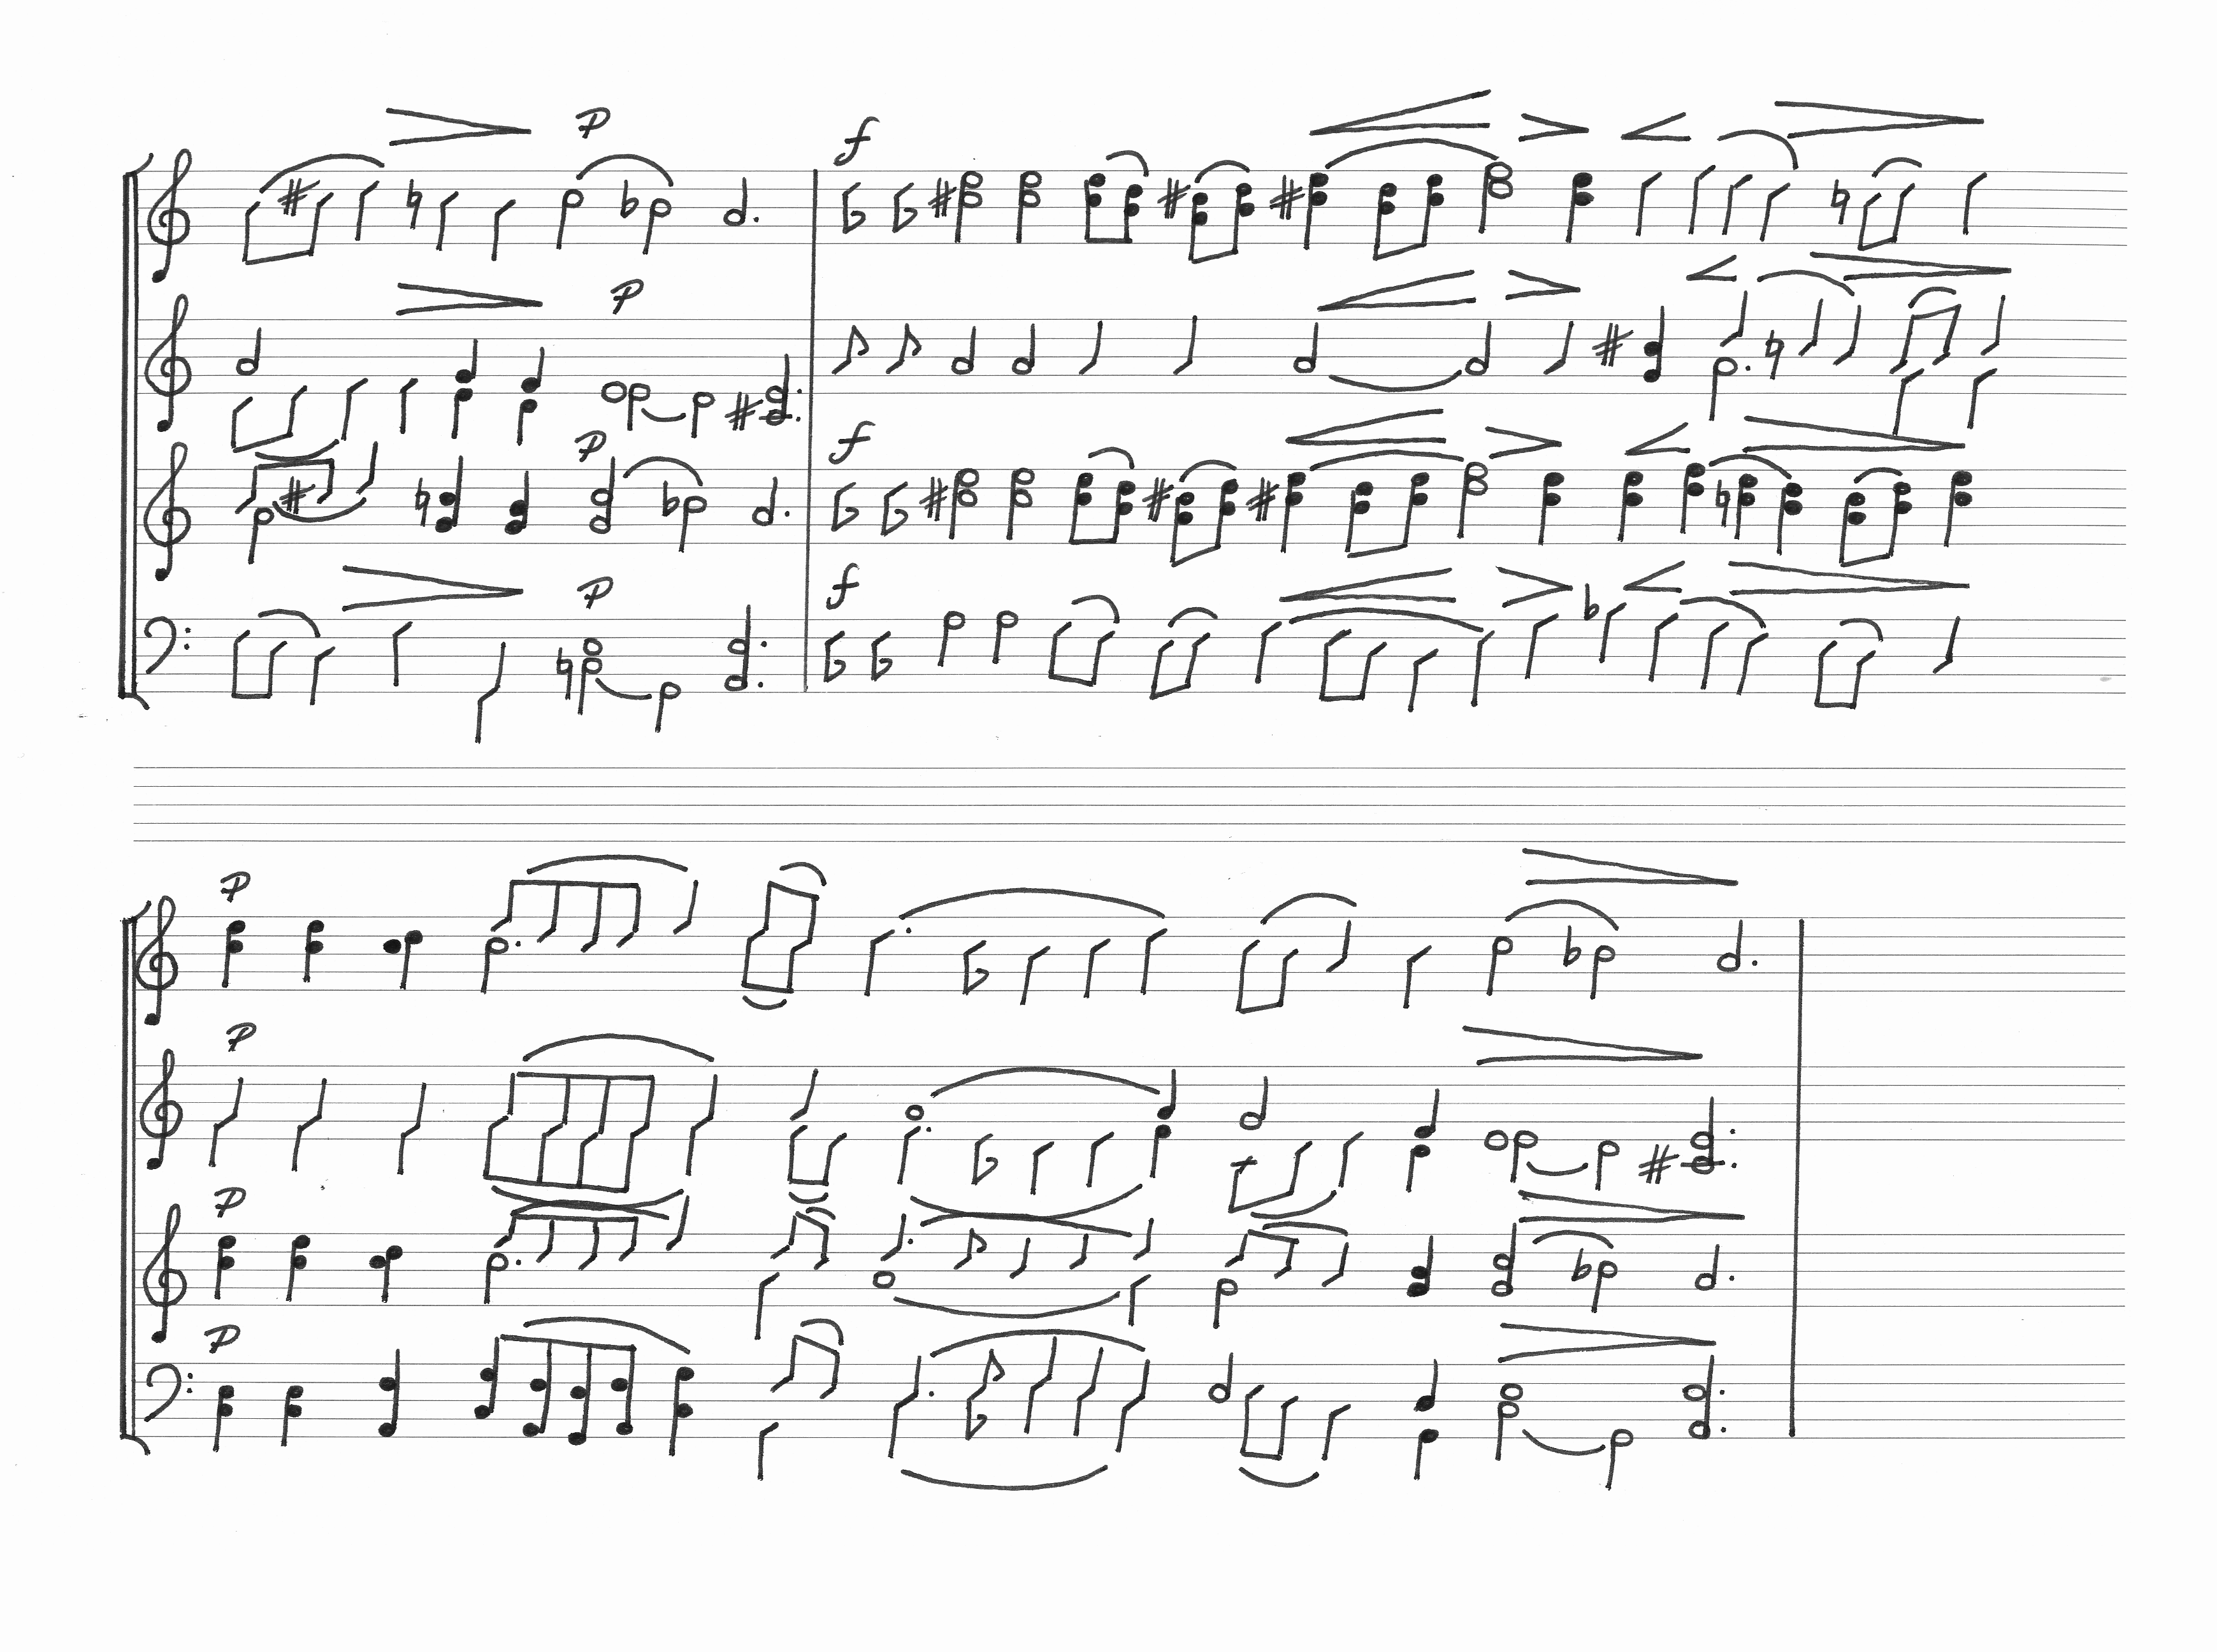 p
p
f
p
f
p
f
p
p
p
p